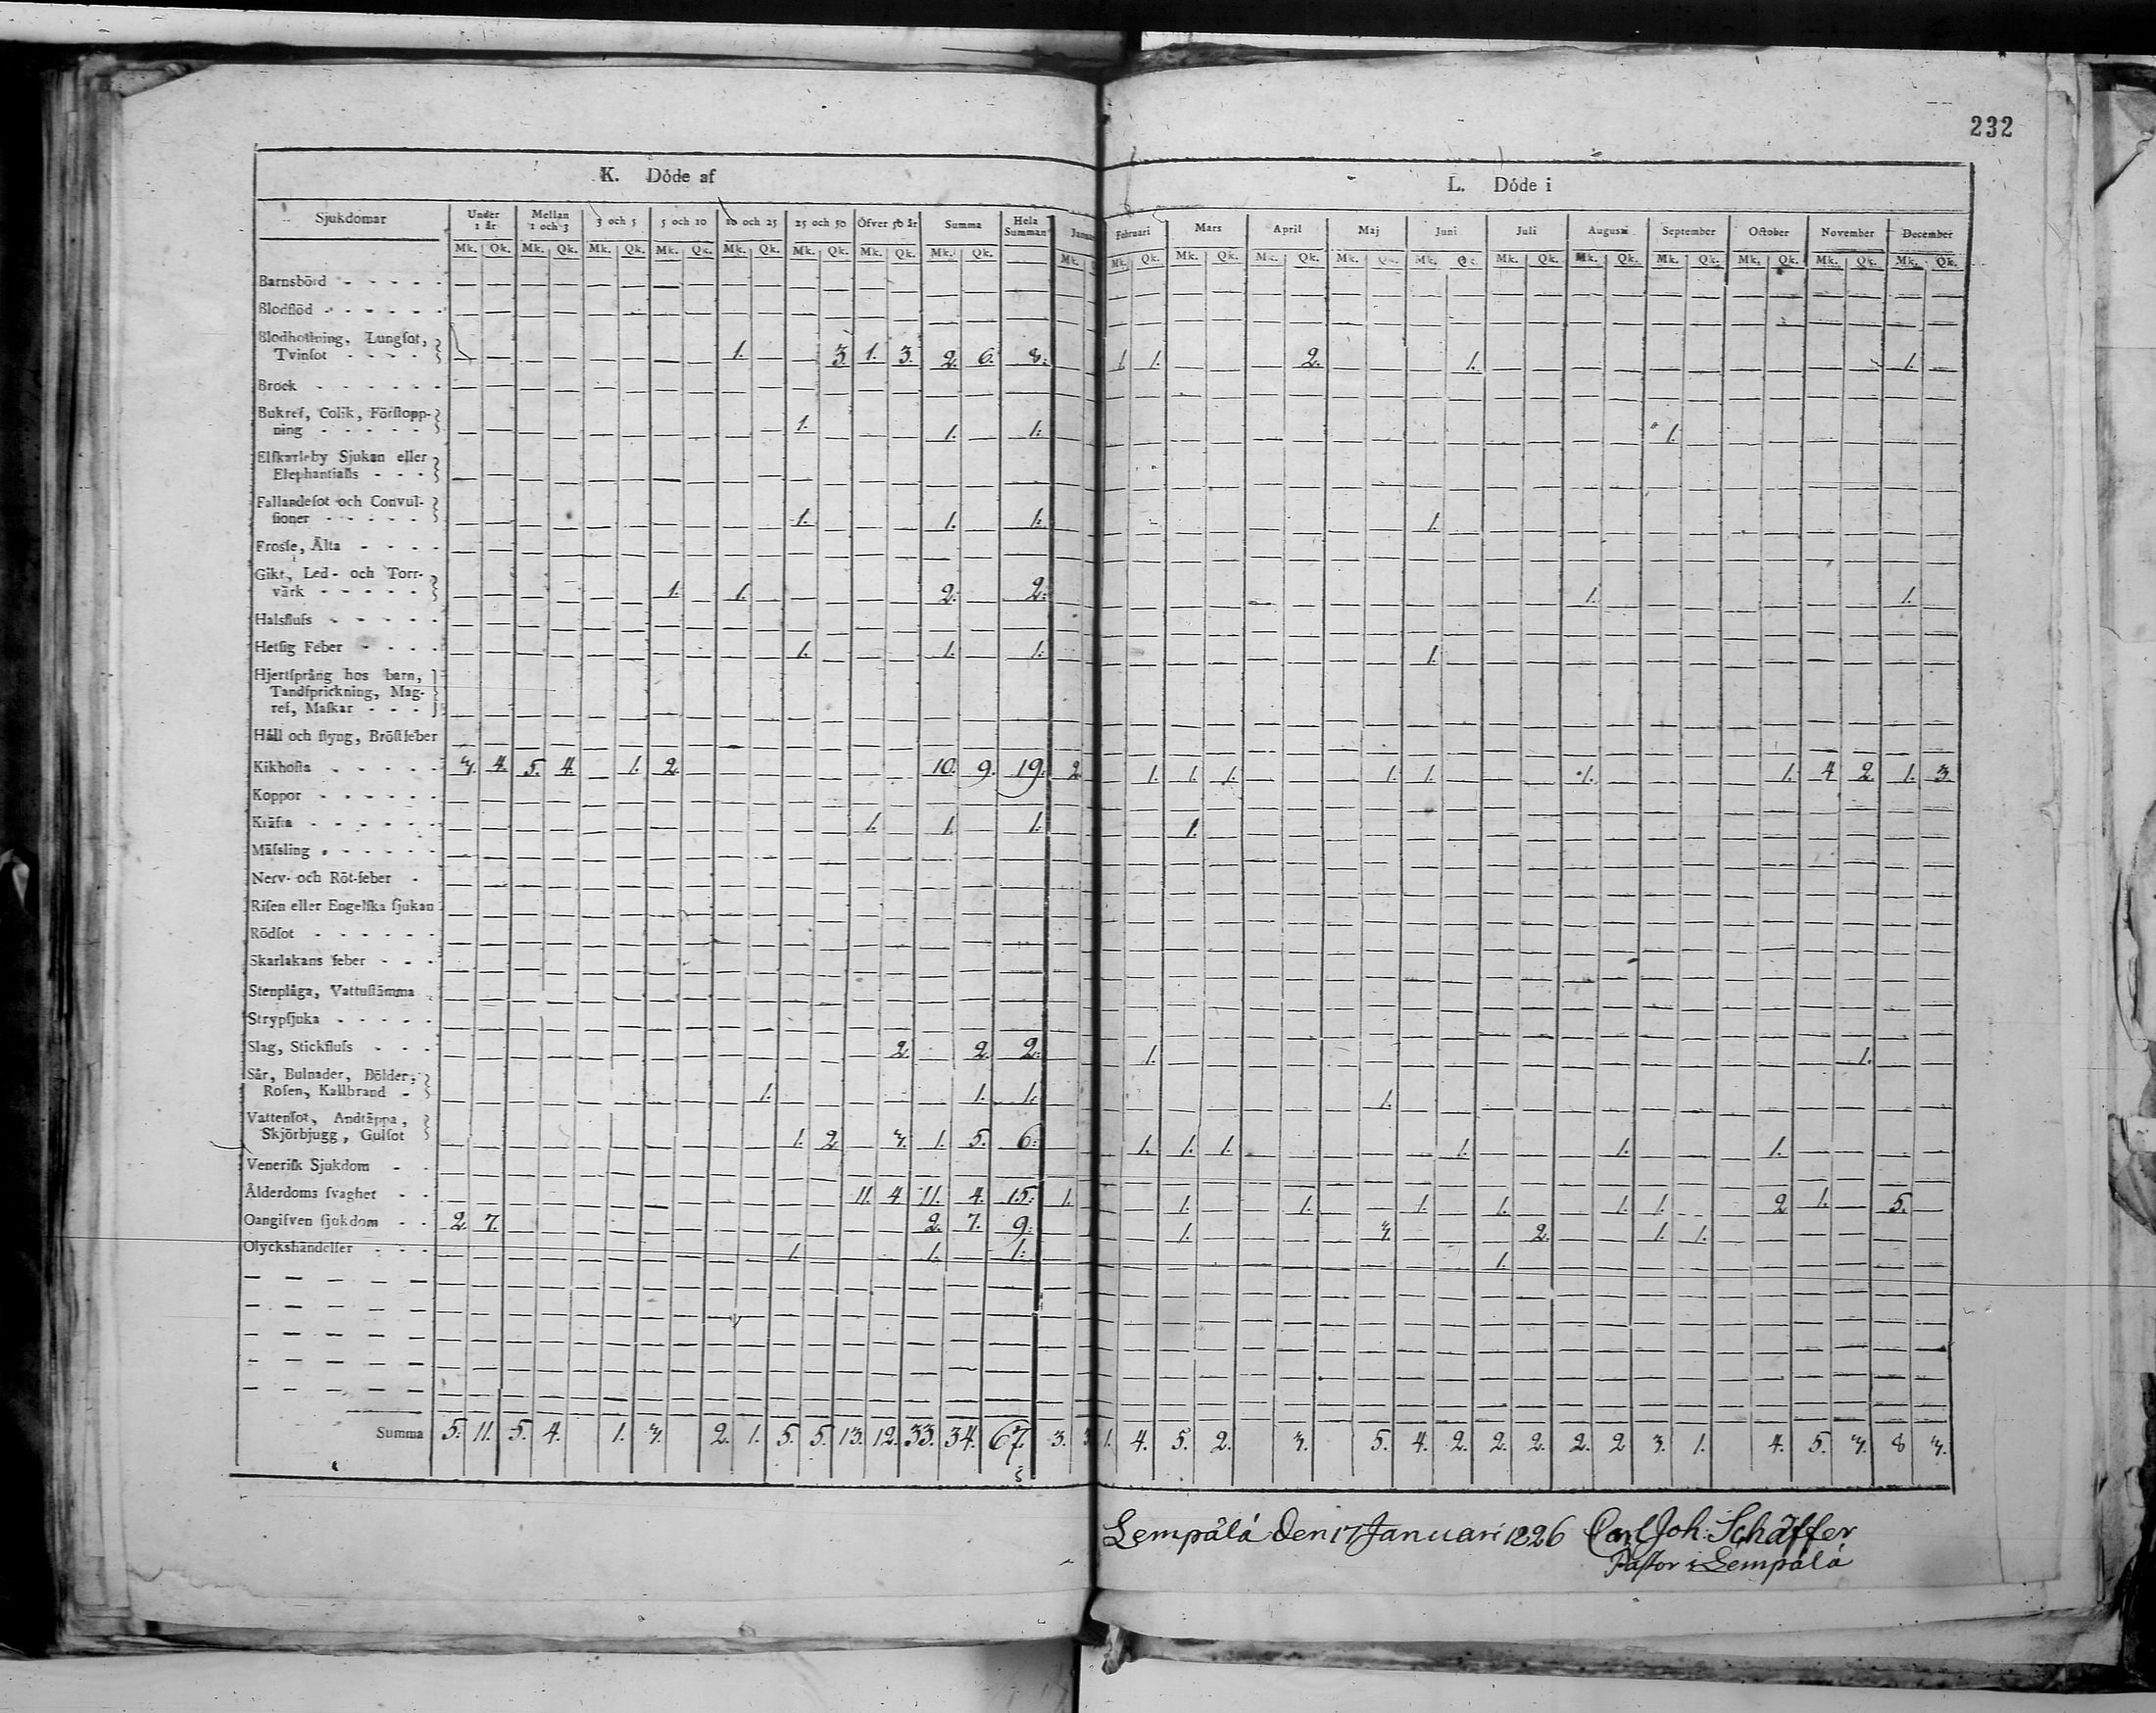 232
K. Döde af
L. Döde i
Sjukdomar | Under 1 år | Mellan 1 och 3 | 3 och 5 | 5 och 10 | 10 och 25 | 25 och 50 | Öfver 50 år | Summa | Hela Summan | Februari | Mars | April | Maj | Juni | Juli | Augusti | September | October | November | December
Mk. Qk. Mk. Qk. Mk. Qk. Mk. Qk. Mk. Qk. Mk. Qk. Mk. Qk. Mk. Qk. Mk. Mk. Qk. Mk. Qk. Mk. Qk. Mk. Qk. Mk. Qk. Mk. Qk. Mk. Qk. Mk. Qk. Mk. Qk. Mk. Qk. Mk. Qk.
Barnsbörd - - - - -
Blodflöd - - - - - -
Blodhostning, Lungſot,
Tvinſot - - - - 1. 3. 1. 3. 2. 6. 8: 1. 1. 2. 1. 1.
Brock - - - - - -
Bukref, Colik, Förſtopp-
ning - - - - - 1. 1. 1: 1.
Elſkarleby Sjukan eller
Elephantiaſis - - -
Fallandeſot och Convul-
ſioner - - - - - 1. 1. 1: 1.
Frosſe, Älta - - - -
Gikt, Led- och Torr-
värk - - - - - 1. 1. 2. 2: 1. 1.
Halsfluſs - - - - -
Hetſig Feber - - - - 1. 1. 1: 1.
Hjertſprång hos barn,
Tandſprickning, Mag-
ref, Maſkar - - -
Håll och ſtyng, Bröſtfeber
Kikhoſta - - - - - 3. 4. 5. 4. 1. 2. 10. 9. 19: 2. 1. 1. 1. 1. 1. 1. 1. 4 2 1. 3
Koppor - - - - - -
Kräfta - - - - - - 1. 1. 1: 1.
Mäſsling - - - - -
Nerv- och Röt-feber -
Riſen eller Engelſka ſjukan
Rödſot - - - - - -
Skarlakans feber - - -
Stenplåga, Vattuſtämma
Strypſjuka - - - - -
Slag, Stickfluſs - - - 2. 2. 2: 1. 1.
Sår, Bulnader, Bölder,
Roſen, Kallbrand - 1. 1. 1. 1.
Vattenſot, Andtäppa,
Skjörbjugg, Gulſot 1. 2. 3. 1. 5. 6: 1. 1. 1. 1. 1. 1.
Veneriſk Sjukdom - -
Ålderdoms ſvaghet - - 11. 4 11. 4. 15: 1. 1. 1. 1. 1. 1. 1. 2 1. 5.
Oangiſven ſjukdom - - 2. 7. 2. 7. 9: 1. 3. 2. 1. 1.
Olyckshändelſer - - - 1. 1. 1: 1.
Summa 5. 11. 5. 4. 1. 3. 2. 1. 5. 5. 13. 12. 33. 34. 67. 3. 1. 4. 5. 2. 3. 5. 4. 2. 2. 2. 2. 2 3. 1. 4. 5. 3. 8 3.
Lempälä den 17 Januari 1826 Carl Joh: Schäffer
Paſtor i Lempälä